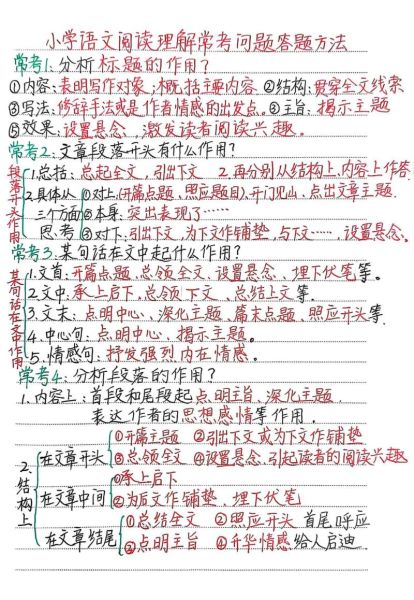 小学语文阅读理解常考问题答题方法
常考1:分析标题的作用?
①内容:表明写作对象;概括主要内容 ②结构:贯穿全文线索
③写法:修辞手法或是作者情感的出发点。④主旨:揭示主题
⑤效果:设置悬念,激发读者阅读兴趣。
常考2:文章段落开头有什么作用?
段落开头作用
1.总括:总起全文,引出下文 2.再分别从结构上、内容上作答
2.具体从三个方面思考
①对上:(开篇点题、照应题目),开门见山、点出文章主题.
②本身:突出表现了……
③对下:引出下文,为下文作铺垫,与下文……,设置悬念。
常考3.某句话在文中起什么作用?
某句话在文作用
1.文首:开篇点题、总领全文、设置悬念、埋下伏笔等。
2.文中:承上启下、总领下文、总结上文等.
3.文末:点明中心、深化主题、篇末点题、照应开头等.
4.中心句:点明中心、揭示主题。
5.情感句:抒发强烈内在情感。
常考4:分析段落的作用?
1.内容上:首段和尾段起点明主旨、深化主题.
表达作者的思想感情等作用.
2.结构上
在文章开头
①开篇主题 ②引出下文或为下文作铺垫
③总领全文 ④设置悬念、引起读者的阅读兴趣
在文章中间
①承上启下
②为后文作铺垫、埋下伏笔
在文章结尾
①总结全文 ②照应开头 首尾呼应
③点明主旨 ④升华情感 给人启迪.